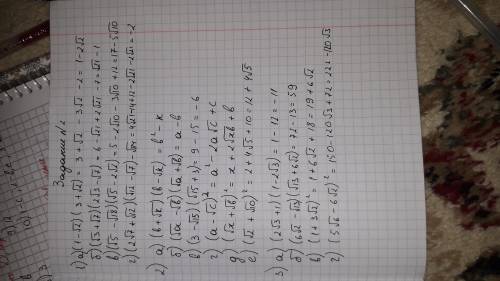 Задание №2
1) а) (1-√2)(3+√2) = 3+√2 - 3√2 - 2 = 1-2√2
б) (√3+√7)(2√3-√7) = 6-√21+2√21-7 = √21-1
в) (√5-√8)(√5-2√2) = 5-2√10-3√10+12 = 17-5√10
2) а) (b+√x)(b-√x) = b²-x
б) (√a-√b)(√a+√b) = a-b
в) (3-√15)(√15+3) = 9-15 = -6
г) (a-√c)² = a²-2a√c+c
д) (√x+√b)² = x+2√xb+b
е) (√2+√10)² = 2+4√5+10 = 12+4√5
3) а) (2√3+1)(1-2√3) = 1-12 = -11
б) (6√2-√13)(√13+6√2) = 72-13 = 59
в) (1+3√2)² = 1+6√2+18 = 19+6√2
г) (5√6-6√2)² = 150-120√3+72 = 222-120√3